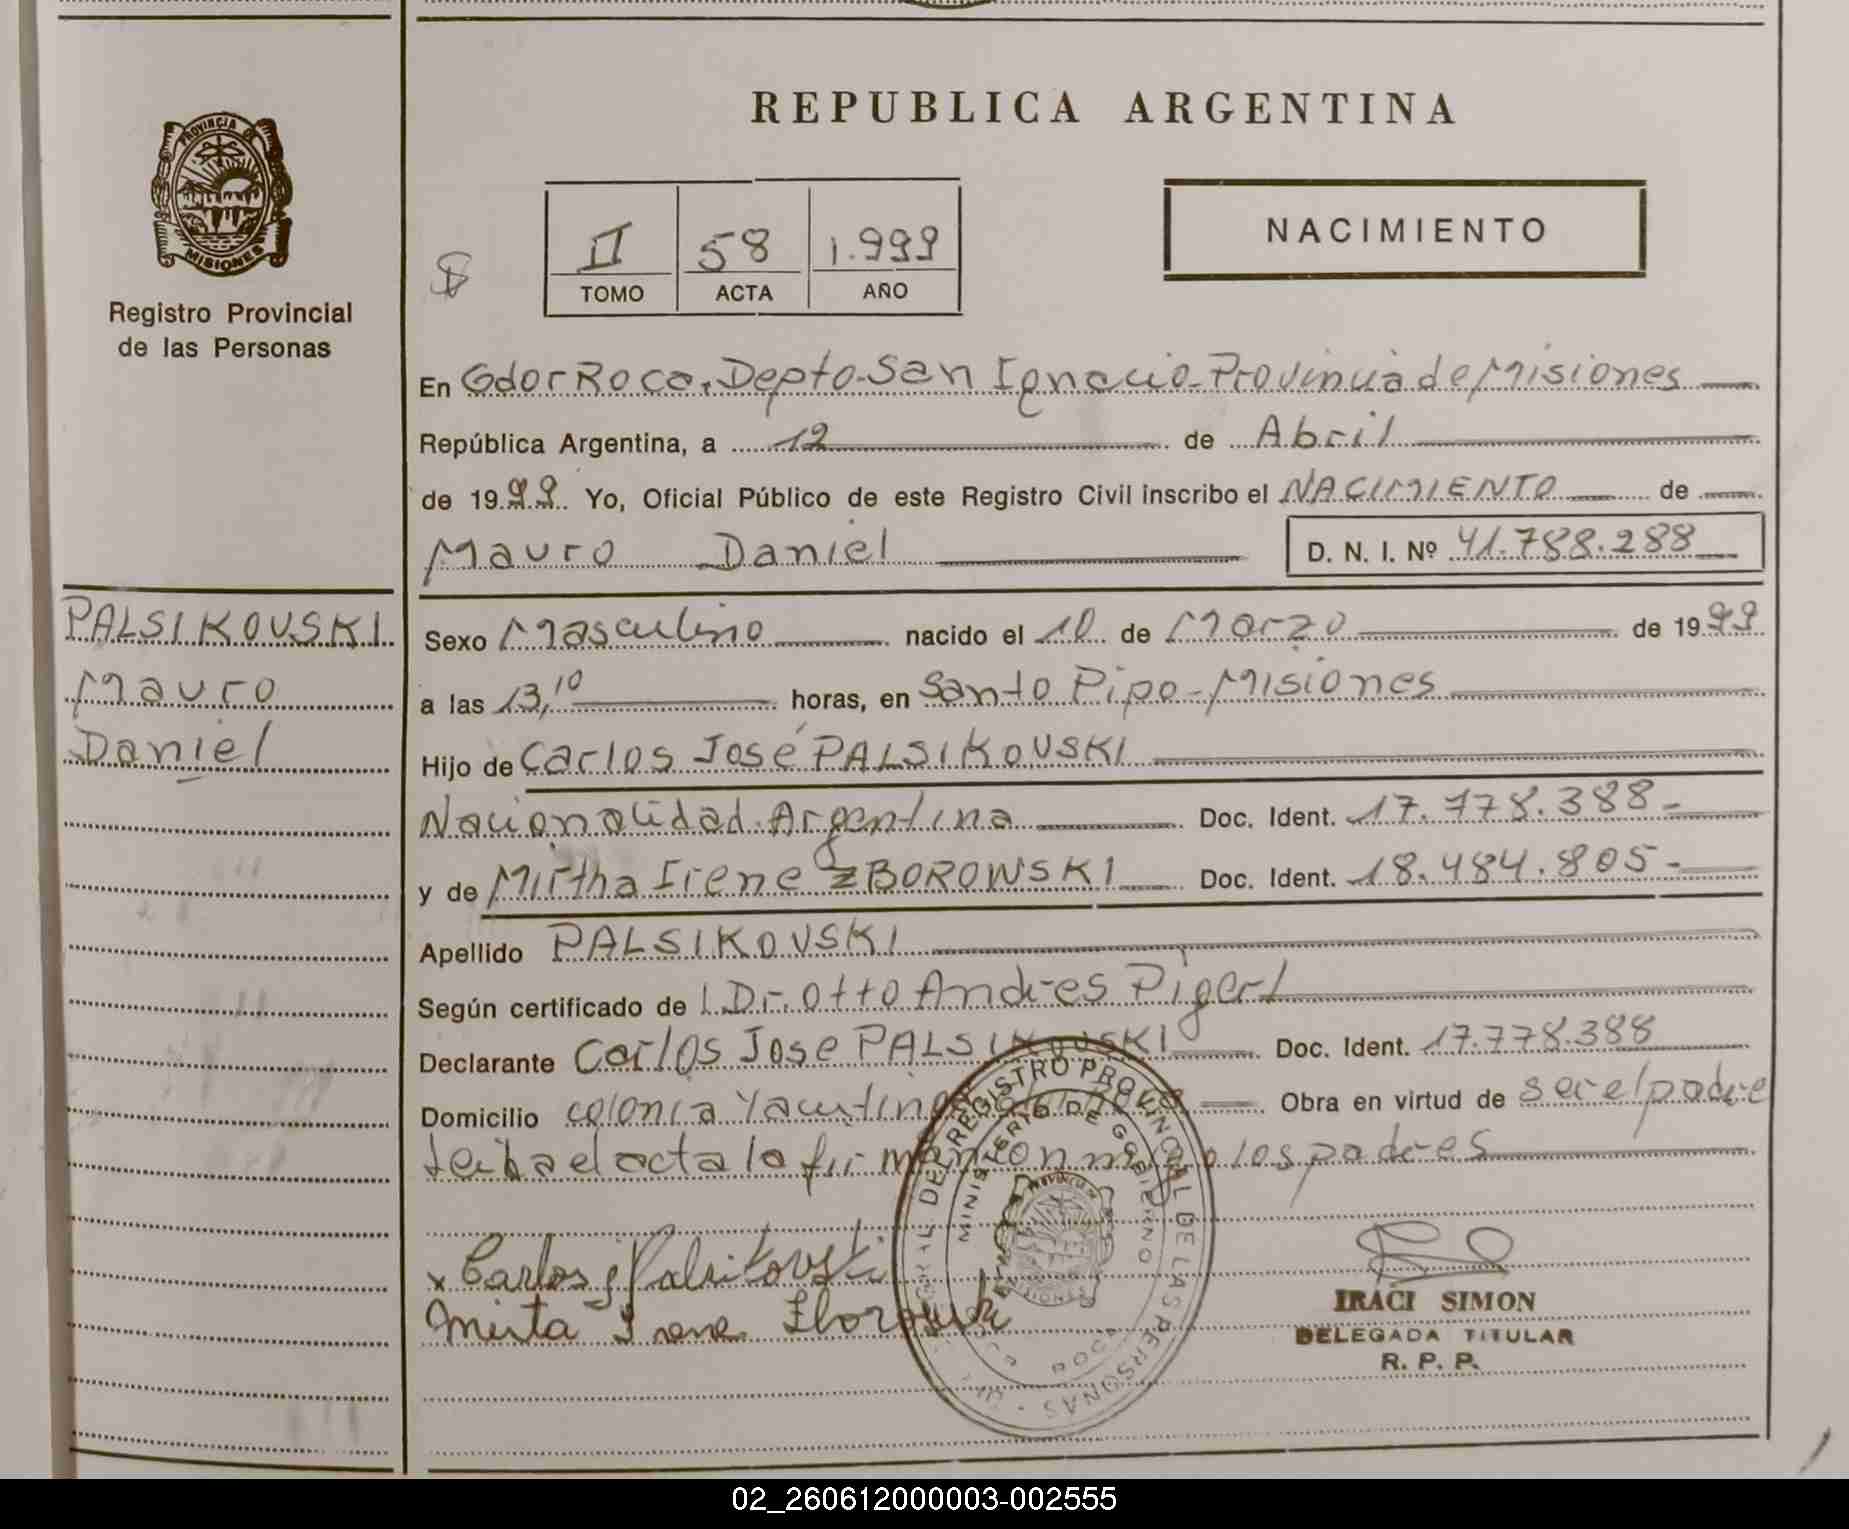 REPUBLICA ARGENTINA
PROVINCIA DE
MISIONES
Registro Provincial
de las Personas
II 58 1.999
TOMO ACTA AÑO
NACIMIENTO
En Gdor Roca, Depto-San Ignacio-Provincia de Misiones
República Argentina, a 12 de Abril
de 1999 Yo, Oficial Público de este Registro Civil inscribo el NACIMIENTO de
Mauro Daniel D. N. I. Nº 41.788.288
PALSIKOVSKI
Mauro
Daniel
Sexo Masculino nacido el 10 de Marzo de 1999
a las 13,10 horas, en Santo Pipo-Misiones
Hijo de Carlos José PALSIKOVSKI
Nacionalidad Argentina Doc. Ident. 17.778.388-
y de Mirtha Irene ZBOROWSKI Doc. Ident. 18.484.805-
Apellido PALSIKOVSKI
Según certificado de l Dr. Otto Andres Pigerl
Declarante Carlos Jose PALSIKOVSKI Doc. Ident. 17.778.388
Domicilio colonia Obra en virtud de ser el padre
Leida el acta la firman conmigo los padres
x Carlos j Palsikovski
Mirta Irene Zborowski
REGISTRO PROVINCIAL DE LAS PERSONAS
MINISTERIO DE GOBIERNO
IRACI SIMON
DELEGADA TITULAR
R. P. P.
02_260612000003-002555